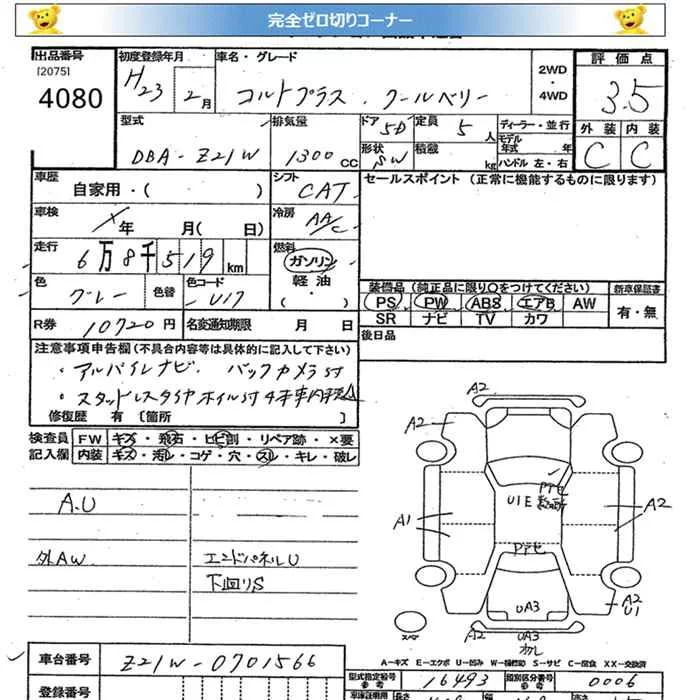 完全ゼロ切りコーナー
出品番号
[2075]
4080
初度登録年月
H23 2月
車名・グレード
コルトプラス・クールベリー
2WD
・
4WD
評価点
3.5
外装 内装
C C
型式
DBA-Z21W
排気量
1300CC
ドア 5D
定員 5人
形状 SW
積載 kg
ディーラー・並行
モデル年式 年
ハンドル 左・右
車歴
自家用・( )
シフト
CAT
セールスポイント(正常に機能するものに限ります)
車検
年 月( 日)
冷房
AA/C
走行
6万8千519km
燃料
ガソリン
軽油
・
( )
色
グレー
色替
色コード
U17
装備品(純正品に限り〇をつけてください)
PS PW ABS エアB AW
SR ナビ TV カワ
新車保証書
有・無
R券 10720円
名変通知期限 月 日
後日品
注意事項申告欄(不具合内容等は具体的に記入して下さい)
・アルパイレナビ バックカメラ付
・スタッドレスタイヤホイル付4本車内積
修復歴 有[箇所 ]
検査員 FW キズ・飛石・ヒビ割・リペア跡・×要
記入欄 内装 キズ・汚レ・コゲ・穴・スレ・キレ・破レ
A.U
外AW
エンドパネルU
下回りS
A2
A2
U1E
アセ
A1
A2
アセ
UA3
A2
U1
スペア
A2
UA3
A-キズ E-エクボ U-凹み W-補修跡 S-サビ C-腐食 XX-交換済
車台番号
Z21W-0701566
型式指定番号
参考
16493
類別区分番号
参考
0006
登録番号
車庫証明用
参考
長さ